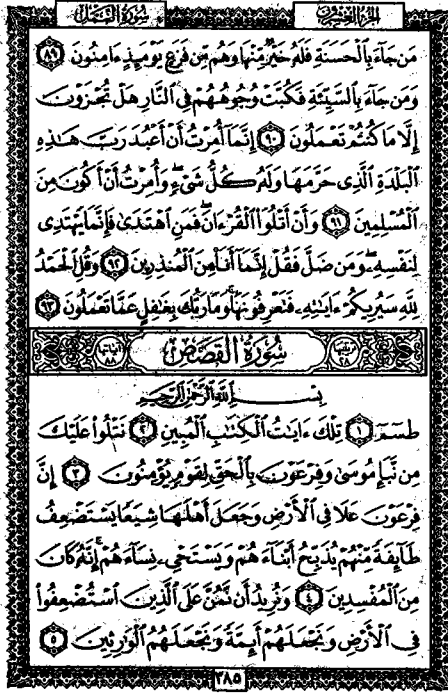 سورة النمل الجزء العشرون
مَن جَآءَ بِٱلْحَسَنَةِ فَلَهُۥ خَيْرٌ مِّنْهَا وَهُم مِّن فَزَعٍ يَوْمَئِذٍ ءَامِنُونَ ٨٩
وَمَن جَآءَ بِٱلسَّيِّئَةِ فَكُبَّتْ وُجُوهُهُمْ فِى ٱلنَّارِ هَلْ تُجْزَوْنَ
إِلَّا مَا كُنتُمْ تَعْمَلُونَ ٩٠ إِنَّمَآ أُمِرْتُ أَنْ أَعْبُدَ رَبَّ هَـٰذِهِ
ٱلْبَلْدَةِ ٱلَّذِى حَرَّمَهَا وَلَهُۥ كُلُّ شَىْءٍ وَأُمِرْتُ أَنْ أَكُونَ مِنَ
ٱلْمُسْلِمِينَ ٩١ وَأَنْ أَتْلُوَا۟ ٱلْقُرْءَانَ فَمَنِ ٱهْتَدَىٰ فَإِنَّمَا يَهْتَدِى
لِنَفْسِهِۦ وَمَن ضَلَّ فَقُلْ إِنَّمَآ أَنَا۠ مِنَ ٱلْمُنذِرِينَ ٩٢ وَقُلِ ٱلْحَمْدُ
لِلَّهِ سَيُرِيكُمْ ءَايَـٰتِهِۦ فَتَعْرِفُونَهَا وَمَا رَبُّكَ بِغَـٰفِلٍ عَمَّا تَعْمَلُونَ ٩٣
سُورَةُ القَصَصِ
بِسْمِ ٱللَّهِ ٱلرَّحْمَـٰنِ ٱلرَّحِيمِ
طسٓمٓ ١ تِلْكَ ءَايَـٰتُ ٱلْكِتَـٰبِ ٱلْمُبِينِ ٢ نَتْلُوا۟ عَلَيْكَ
مِن نَّبَإِ مُوسَىٰ وَفِرْعَوْنَ بِٱلْحَقِّ لِقَوْمٍ يُؤْمِنُونَ ٣ إِنَّ
فِرْعَوْنَ عَلَا فِى ٱلْأَرْضِ وَجَعَلَ أَهْلَهَا شِيَعًا يَسْتَضْعِفُ
طَآئِفَةً مِّنْهُمْ يُذَبِّحُ أَبْنَآءَهُمْ وَيَسْتَحْىِۦ نِسَآءَهُمْ إِنَّهُۥ كَانَ
مِنَ ٱلْمُفْسِدِينَ ٤ وَنُرِيدُ أَن نَّمُنَّ عَلَى ٱلَّذِينَ ٱسْتُضْعِفُوا۟
فِى ٱلْأَرْضِ وَنَجْعَلَهُمْ أَئِمَّةً وَنَجْعَلَهُمُ ٱلْوَٰرِثِينَ ٥
٣٨٥